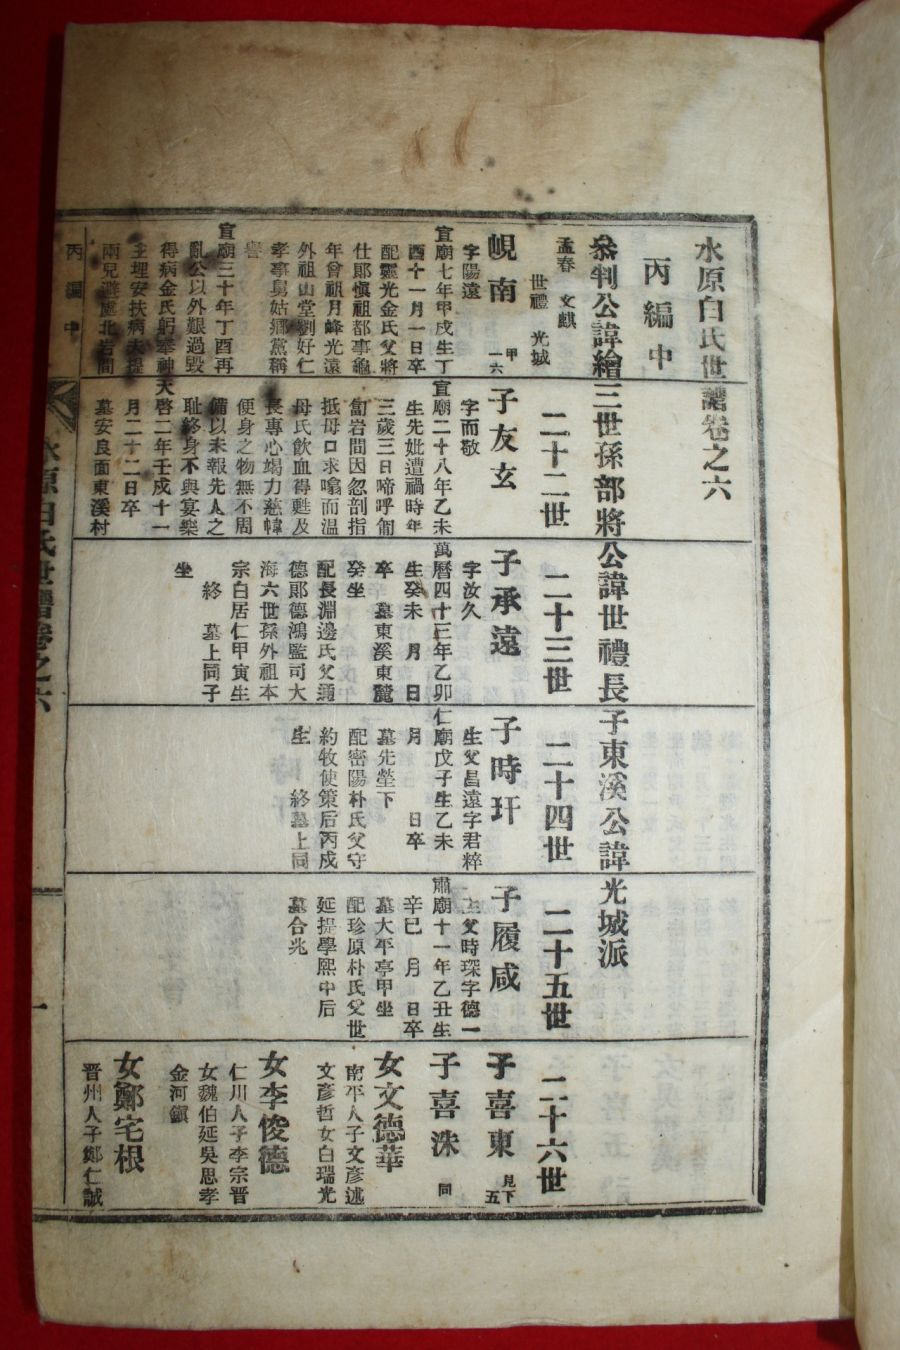 水原白氏世譜卷之六
丙編中
叅判公諱繪三世孫部將公諱世禮長子東溪公諱光城派
孟春 文麒
世禮 光城
二十二世
二十三世
二十四世
二十五世
二十六世
峴南 甲一六
字陽遠
宣廟七年甲戌生丁
酉十一月一日卒
配靈光金氏父將
仕郞愼祖都事龜
年曾祖月峰光遠
外祖山堂劉好仁
孝事舅姑鄕黨稱
譽
宣廟三十年丁酉再
亂公以外艱過毁
得病金氏躬奉神
主埋安扶病夫提
兩兒避處北岩間
子友玄
字而敬
宣廟二十八年乙未
生先妣遭禍時年
三歲三日啼呼匍
匐岩間因忽剖指
抵母口求嗋而温
母氏飮血得甦及
長專心竭力慈幃
便身之物無不周
備以未報先人之
耻終身不與宴樂
天啓二年壬戌十一
月二十二日卒
墓安良面東溪村
子承遠
字汝久
萬曆四十三年乙卯
生癸未 月 日
卒 墓東溪東麓
癸坐
配長淵邊氏父通
德郞德鴻監司大
海六世孫外祖本
宗白居仁甲寅生
終 墓上同子
坐
子時玕
生父昌遠字君粹
仁廟戊子生乙未
月 日卒
墓先塋下
配密陽朴氏父守
約牧使策后丙戌
生 終墓上同
子履咸
生父時琛字德一
肅廟十一年乙丑生
辛巳 月 日卒
墓大平亭甲坐
配珍原朴氏父世
延提學熙中后
墓合兆
子喜東 見下五
子喜洙 同
女文德華
南平人子文彥述
文彥哲女白瑞光
女李俊德
仁川人子李宗晋
女魏伯延吳思孝
金河鎭
女鄭宅根
晋州人子鄭仁誠
丙編中
水原白氏世譜卷之六
一